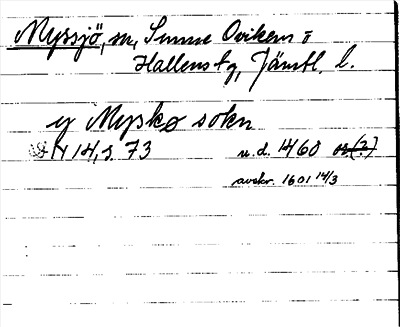 Myssjö, sn, Sunne Ovikens o
Hallens tg, Jämtl. l.
y Myskø sokn
N 14, s. 73 u.d. 1460 os (?)
avskr. 1601 14/3